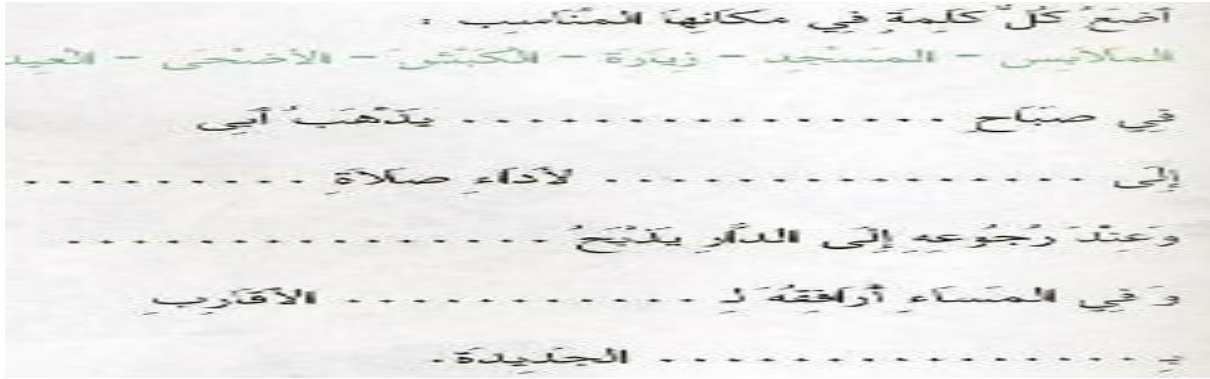 أَضَعُ كُلَّ كَلِمَةٍ فِي مَكَانِهَا الْمُنَاسِبِ :
الْمَلَابِسِ - الْمَسْجِدِ - زِيَارَةِ - الْكَبْشَ - الْأَضْحَى - الْعِيدِ
فِي صَبَاحِ ................ يَذْهَبُ أَبِي
إِلَى ................ لِأَدَاءِ صَلَاةِ ..........
وَعِنْدَ رُجُوعِهِ إِلَى الدَّارِ يَذْبَحُ ................
وَ فِي الْمَسَاءِ أُرَافِقُهُ لِـ ............ الْأَقَارِبِ
بِـ ................ الْجَدِيدَةِ .